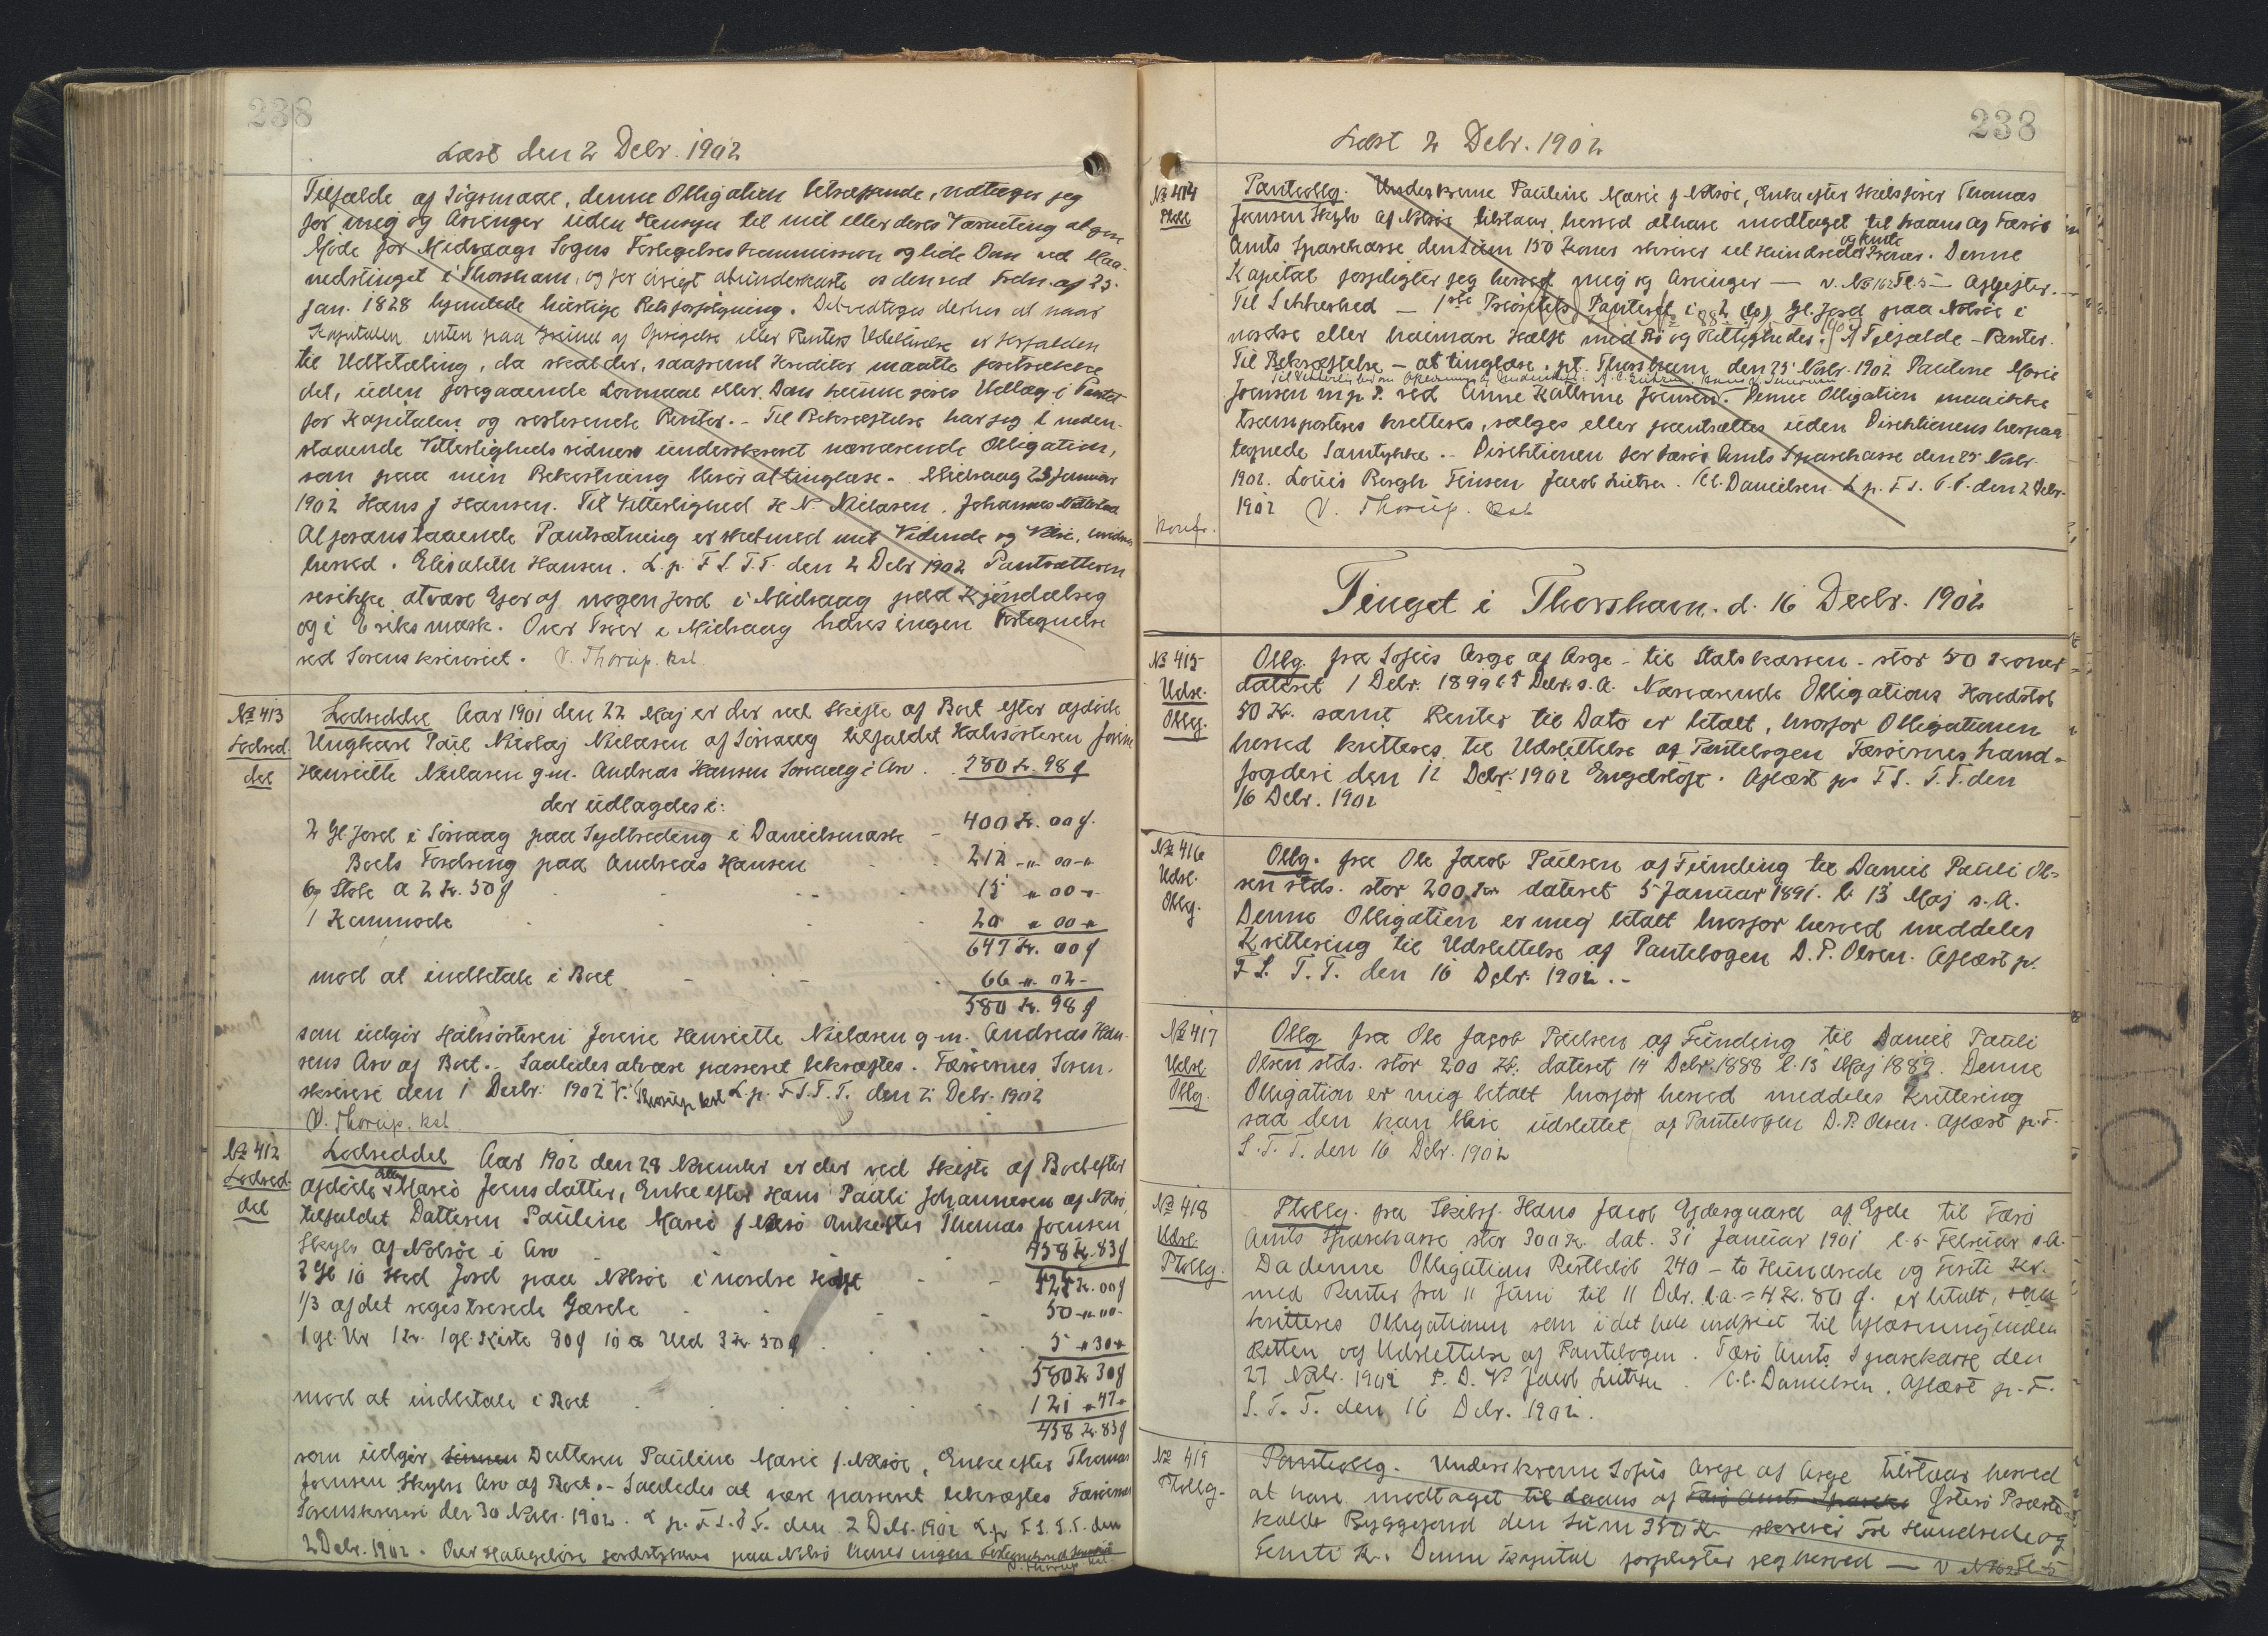 238
Læst den 2 Debr. 1902
Tilfælde af Søgsmaal, denne Obligation betræffende, vedtager jeg
for mig og Arvinger uden Hensyn til mit eller deres Værneting at give
Møde for Midvaags Sogns Forligelseskommission og lide Dom ved Maa-
nedstinget i Thorshavn, og før øvrigt at underkaste os den ved Frdn. af 25.
Jan. 1828 hjemlede hurtige Retsforfølgning. Det vedtages derhos at naar
Kapitalen enten paa Grund af Opsigelse eller Renters Udeblivelse er forfalden
til Udbetaling, da skal der, saafremt Kreditor maatte foretrække
det, uden foregaaende Lovmaal eller Dom kunne gives Udlæg i Pantet
for Kapitalen og resterende Renter. - Til Bekræftelse har jeg i neden-
staaende Vitterligheds vidners underskrevet nærværende Obligation,
som paa min Bekostning bliver at tinglæse. Midvaag 25 Januar
1902 Hans J Hansen. Til Vitterlighed H. N. Nielasen. Johannes
At foranstaaende Pantsætning er sket med mit Vidende og Villie, vidnes
herved. Elisabeth Hansen. L. p. F. S. T. T. den 2 Debr 1902 Pantsætteren
ses ikke at være Ejer af nogen Jord i Midvaag paa Kjøndalseg
og i Eriksmark. Over Træer i Midvaag haves ingen Fortegnelse
ved Sorenskriveriet. V. Thorup. kst
№ 413
Lodsed
del
Lodseddel Aar 1901 den 22 Maj er der ved Skifte af Boet efter afdøde
Ungkarl Poul Nicolaj Nielasen af Sörvaag tilfaldet Halvsösteren Jovine
Henriette Nielasen g. m. Andreas Hansen Sörvaag i Arv. 580 Kr. 98 ø
der udlagdes i:
2 Gl. Jord i Sörvaag paa Sydtræding i Danielsmark - 400 Kr. 00 ø.
Boets Fordring paa Andreas Hansen 212 -"- 00 -"
6 Stole a 2 Kr. 50 ø - - 15 " 00 -"
1 Kommode 20 " 00 -"
647 Kr. 00 ø
mod at indbetale i Boet - - 66 -"- 02 -
580 Kr. 98 ø
som udgör Halvsösteren Jovine Henriette Nielasen g. m. Andreas Han-
sens Arv af Boet. - Saaledes at være passeret bekræftes. Færøernes Soren-
skriveri den 1 Decbr. 1902 V. Thorup kst L. p. F. S. T. T. den 2 Debr. 1902
V. Thorup. kst.
№ 412
Lodsed-
del
Lodseddel Aar 1902 den 28 November er der ved Skifte af Boet efter
afdöde Marie Joensdatter, Enke efter Hans Pauli Johannesen af Nolsö,
tilfaldet Datteren Pauline Marie f Nolsö Enke efter Thomas Joensen
Skylv af Nolsöe i Arv - - - 458 Kr. 83 ø
2 Gl 10 Skd Jord paa Nolsöe i nordre Halft - - 525 Kr. 00 ø
1/3 af det registrerede Gærde - - - 50 -"- 00 -
1 gl. Ur 1 Kr. 1 gl. Kiste 80 ø 10 Uld 3 Kr 50 ø . . 5 -" 30 -"
580 Kr 30 ø
mod at indbetale i Boet 121 -" 47 -"
458 Kr. 83 ø
som udgör Datteren Pauline Marie f. Nolsöe, Enke efter Thomas
Joensen Skylvs Arv af Boet. - Saaledes at være passeret bekræftes Færöernes
Sorenskriveri den 30 Novbr. 1902. L. p. F. S. T. T. den 2 Debr. 1902 L. p. F. S. T. T. den
2 Debr. 1902. Over Haugelöse Jordstykker paa Nolsö haves ingen
V. Thorup kst
238
Læst 2 Debr. 1902
№ 414
Ptobl
Pantoblg. Underskrevne Pauline Marie f Nolsöe, Enke efter Skibsförer Thomas
Joensen Skylv af Nolsöe tilstaar herved at have modtaget til Laans af Færö
Amts Sparekasse den Sum 150 Kroner skriver et Hundrede og femti Kroner. Denne
Kapital forpligter jeg herved mig og Arvinger — v. № 162 Fl. 5 — Afgifter. -
Til Sikkerhed — 1ste Prioritets Panteret i Gl. Jord paa Nolsöe i
nordre eller haimare Halft med Bö og Rettigheder. I Tilfælde - Renter.
Til Bekræftelse - at tinglæse. pt. Thorshavn den 25 Novbr. 1902 Pauline Marie
Joensen m. p. P. ved Anne Kathrine Joensen. Denne Obligation maa ikke
transporteres kvitteres, sælges eller pantsættes uden Direktionens herpaa
tegnede Samtykke. - Direktionen for Færö Amts Sparekasse den 25 Novbr.
1902. Louis Bergh Jensen Jacob Lützen. C. C. Danielsen. L. p. F. S. T. T. den 2 Debr.
1902 V. Thorup. kst
Konf.
Tinget i Thorshavn. d. 16 Decbr. 1902
№ 415
Udsl.
Oblg.
Oblg. fra Sofus Arge af Arge - til Statskassen - stor 50 Kroner
dateret 1 Debr. 1899 l. 5 Debr. s. A. Nærværende Obligations Hovedstol
50 Kr. samt Renter til Dato er betalt, hvorfor Obligationen
herved kvitteres til Udslettelse af Pantebogen Færöernes Land-
fogderi den 12 Debr. 1902 Engelstoft. Aflæst p. F. S. T. T. den
16 Debr. 1902
№ 416
Udsl.
Oblg.
Oblg. fra Ole Jacob Poulsen af Funding til Daniel Pauli Ol-
sen stds. stor 200 Kr dateret 5 Januar 1891. l. 13 Maj s. A.
Denne Obligation er mig betalt hvorfor herved meddeles
Kvittering til Udslettelse af Pantebogen D. P. Olsen. Aflæst p.
F. S. T. T. den 16 Debr. 1902. -
№ 417
Udsl
Oblg.
Oblg fra Ole Jacob Poulsen af Funding til Daniel Pauli
Olsen stds. stor 200 Kr. dateret 14 Debr. 1888 l. 13 Maj 1889. Denne
Obligation er mig betalt hvorfor herved meddeles Kvittering
saa den kan blive udslettet af Pantebogen D. P. Olsen. Aflæst p. F.
S. T. T. den 16 Debr. 1902
№ 418
Udsl
Ptoblg.
Ptoblg. fra Skibsf. Hans Jacob Ejdesgaard af Ejde til Færö
Amts Sparekasse stor 300 Kr. dat. 31 Januar 1901 l. 5 Februar s. A.
Da denne Obligations Restbelöb 240 - to Hundrede og firti Kr.
med Renter fra 11 Juni til 11 Debr. d. a. = 4 Kr. 80 ø. er betalt, saa
kvitteres Obligationen som i det hele indfriet til Aflæsning inden
Retten og Udslettelse af Pantebogen. Færö Amts Sparekasse den
27 Novbr. 1902 P. D. V. Jacob Lützen. C. C. Danielsen. Aflæst p. F.
S. T. T. den 16 Debr. 1902.
№ 419
Ptoblg.
Pantoblg. Underskrevne Sofus Arge af Arge tilstaar herved
at have modtaget til Laans af Færö Amts Spareka Österö Præste-
kalds Byggefond den Sum 350 Kr. skriver Tre Hundrede og
Femti Kr. Denne Kapital forpligter jeg herved — v № 162 Fl 5